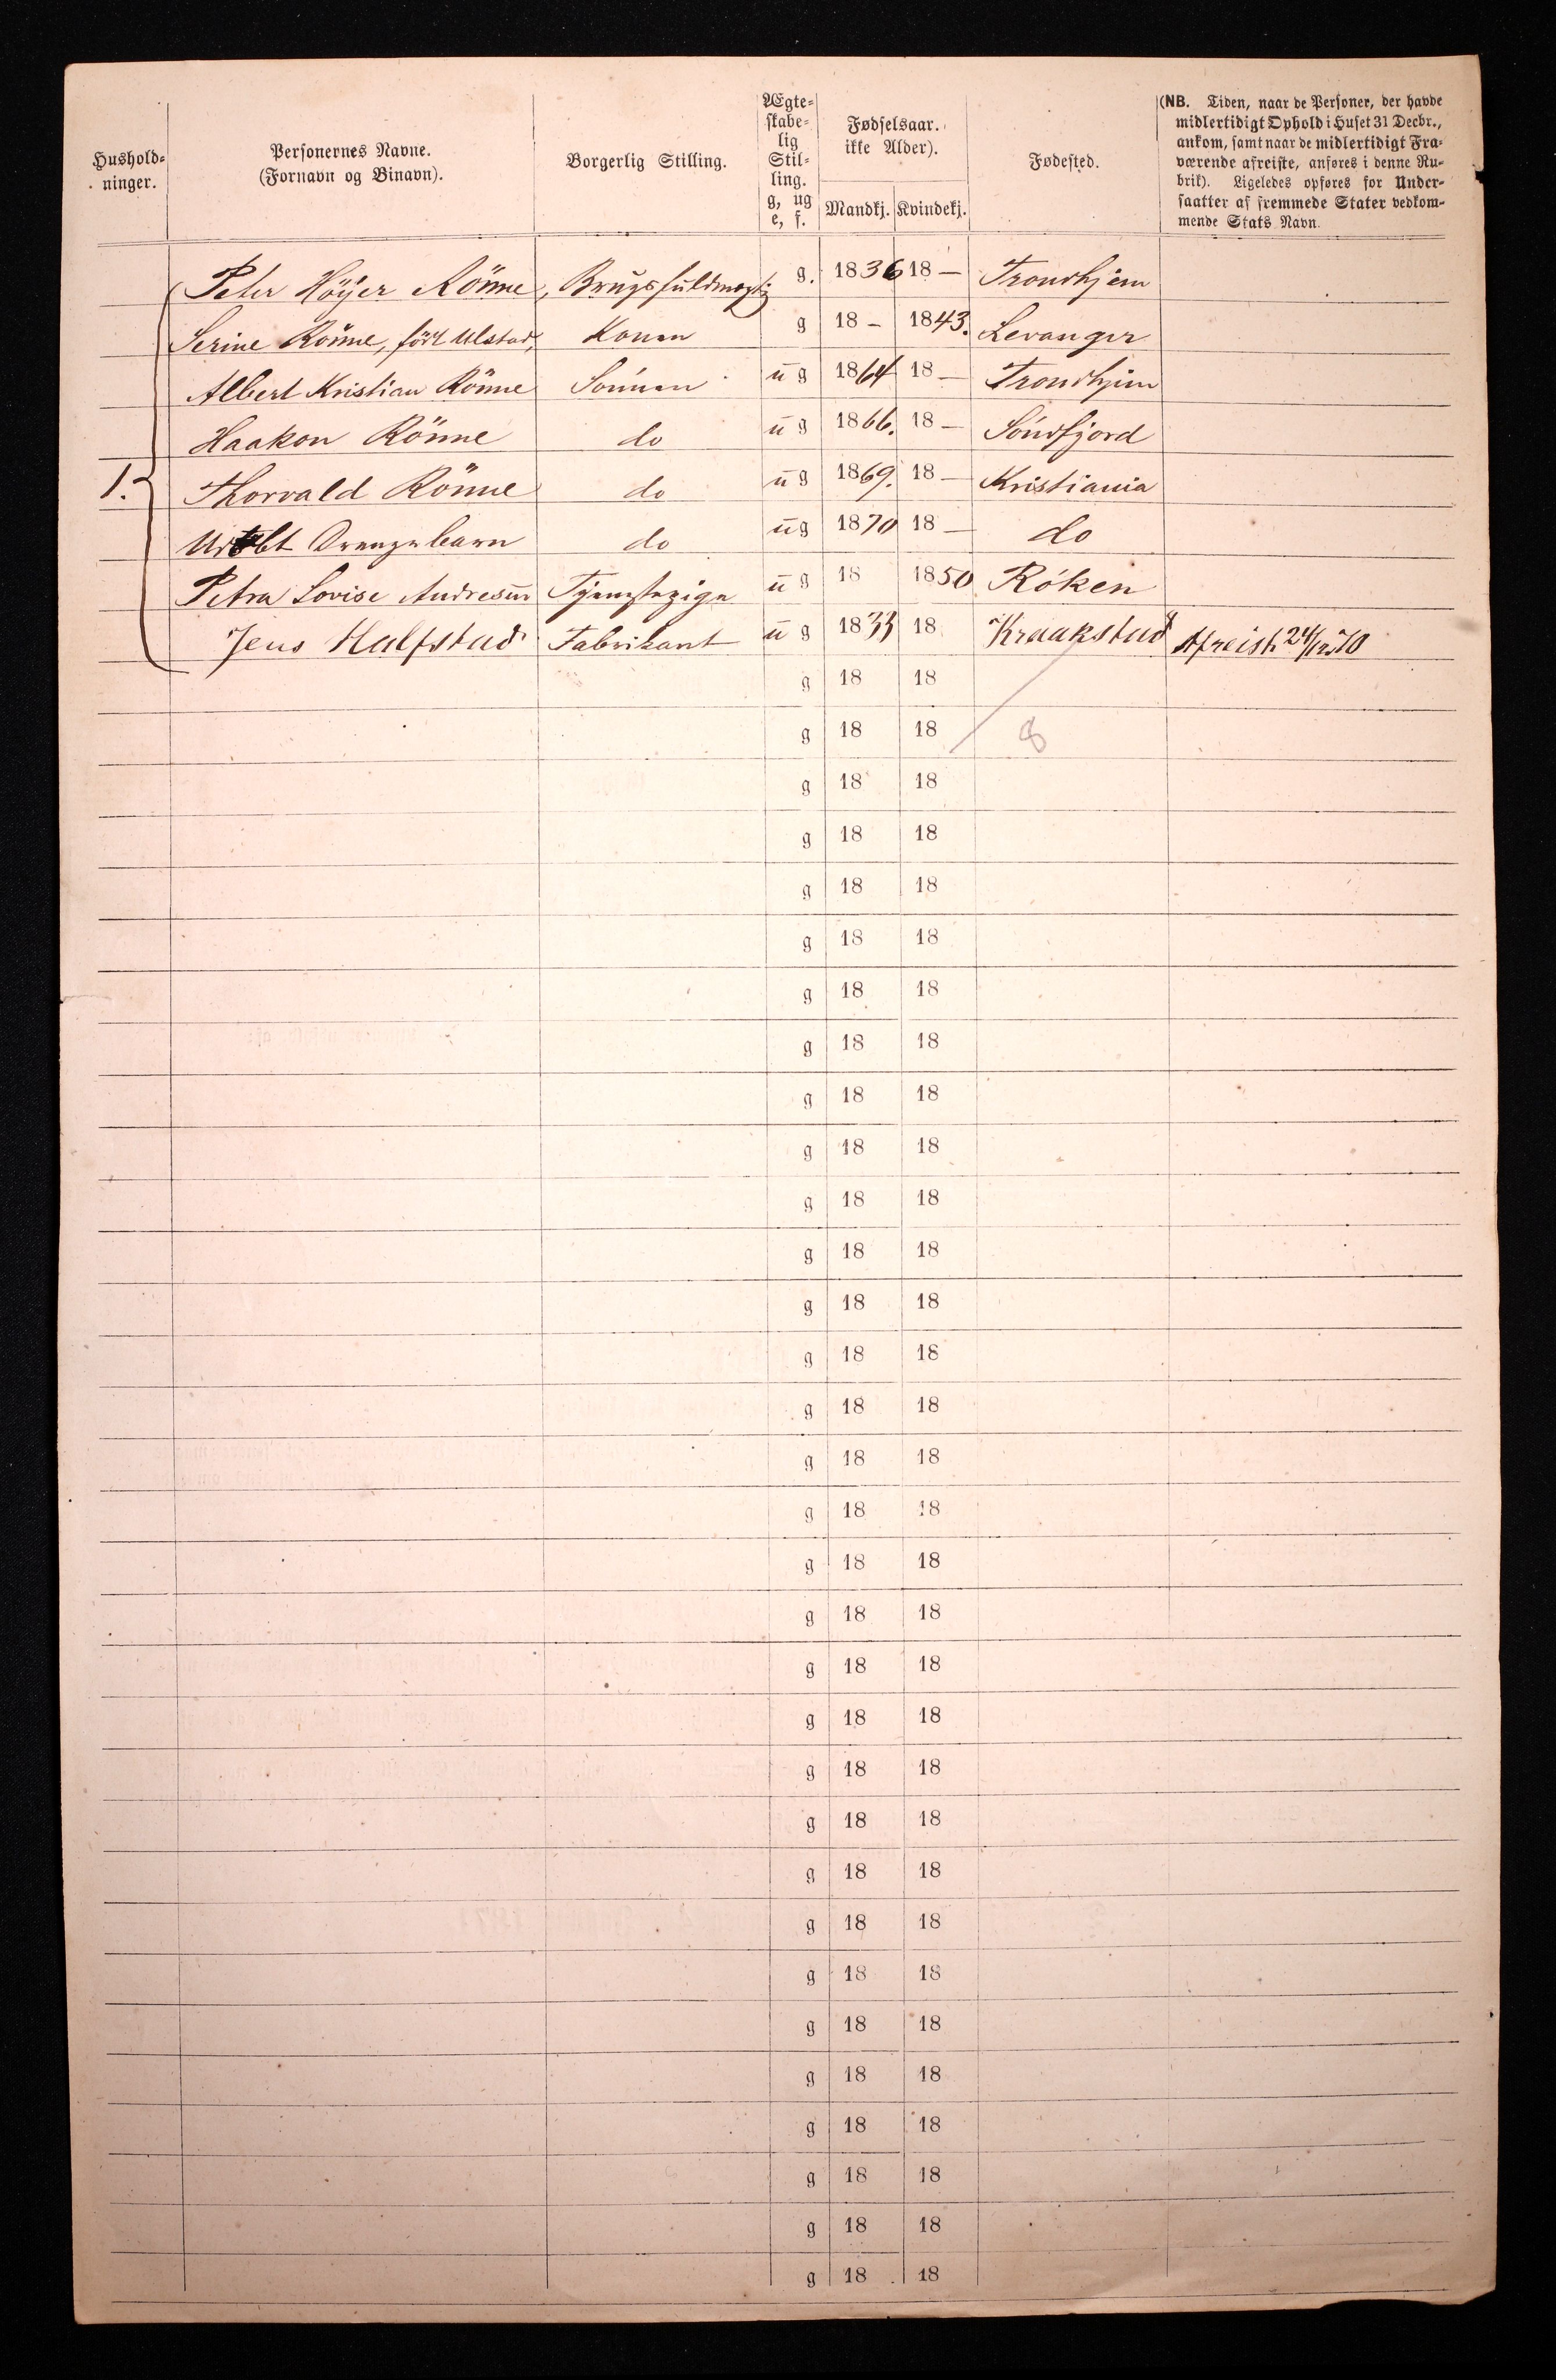 Hushold-
ninger.
Personernes Navne.
(Fornavn og Binavn).
Borgerlig Stilling.
Ægte-
skabe-
lig
Stil-
ling.
g, ug
e, f.
Fødselsaar.
ikke Alder).
Mandkj. Kvindekj.
Fødested.
(NB. Tiden, naar de Personer, der havde
midlertidigt Ophold i Huset 31 Decbr.,
ankom, samt naar de midlertidigt Fra-
værende afreiste, anføres i denne Ru-
brik). Ligeledes opføres for Under-
saatter af fremmede Stater vedkom-
mende Stats Navn.
Peter Höÿer Rönne, Brugsfuldmægtig g. 1836 18 — Trondhjem
Serine Rönne, född Ulstad, Konen g 18 – 1843. Levanger
Albert Kristian Rönne Sönnen ug 1864 18 — Trondhjem
Haakon Rönne do ug 1866. 18 — Söndfjord
1. Thorvald Rönne do ug 1869. 18 — Kristiania
Udöbt Drengebarn do ug 1870 18 — do
Petra Lovise Andresen Tjenestepige ug 18 1850 Röken
Jens Halfstad Fabrikant ug 1833 18 Kraakstad Afreist 24/12 70
g 18 18
g 18 18 8
g 18 18
g 18 18
g 18 18
g 18 18
g 18 18
g 18 18
g 18 18
g 18 18
g 18 18
g 18 18
g 18 18
g 18 18
g 18 18
g 18 18
g 18 18
g 18 18
g 18 18
g 18 18
g 18 18
g 18 18
g 18 18
g 18 18
g 18 18
g 18 18
g 18 18
g 18 18
g 18 18
g 18 18
g 18 18
g 18 18